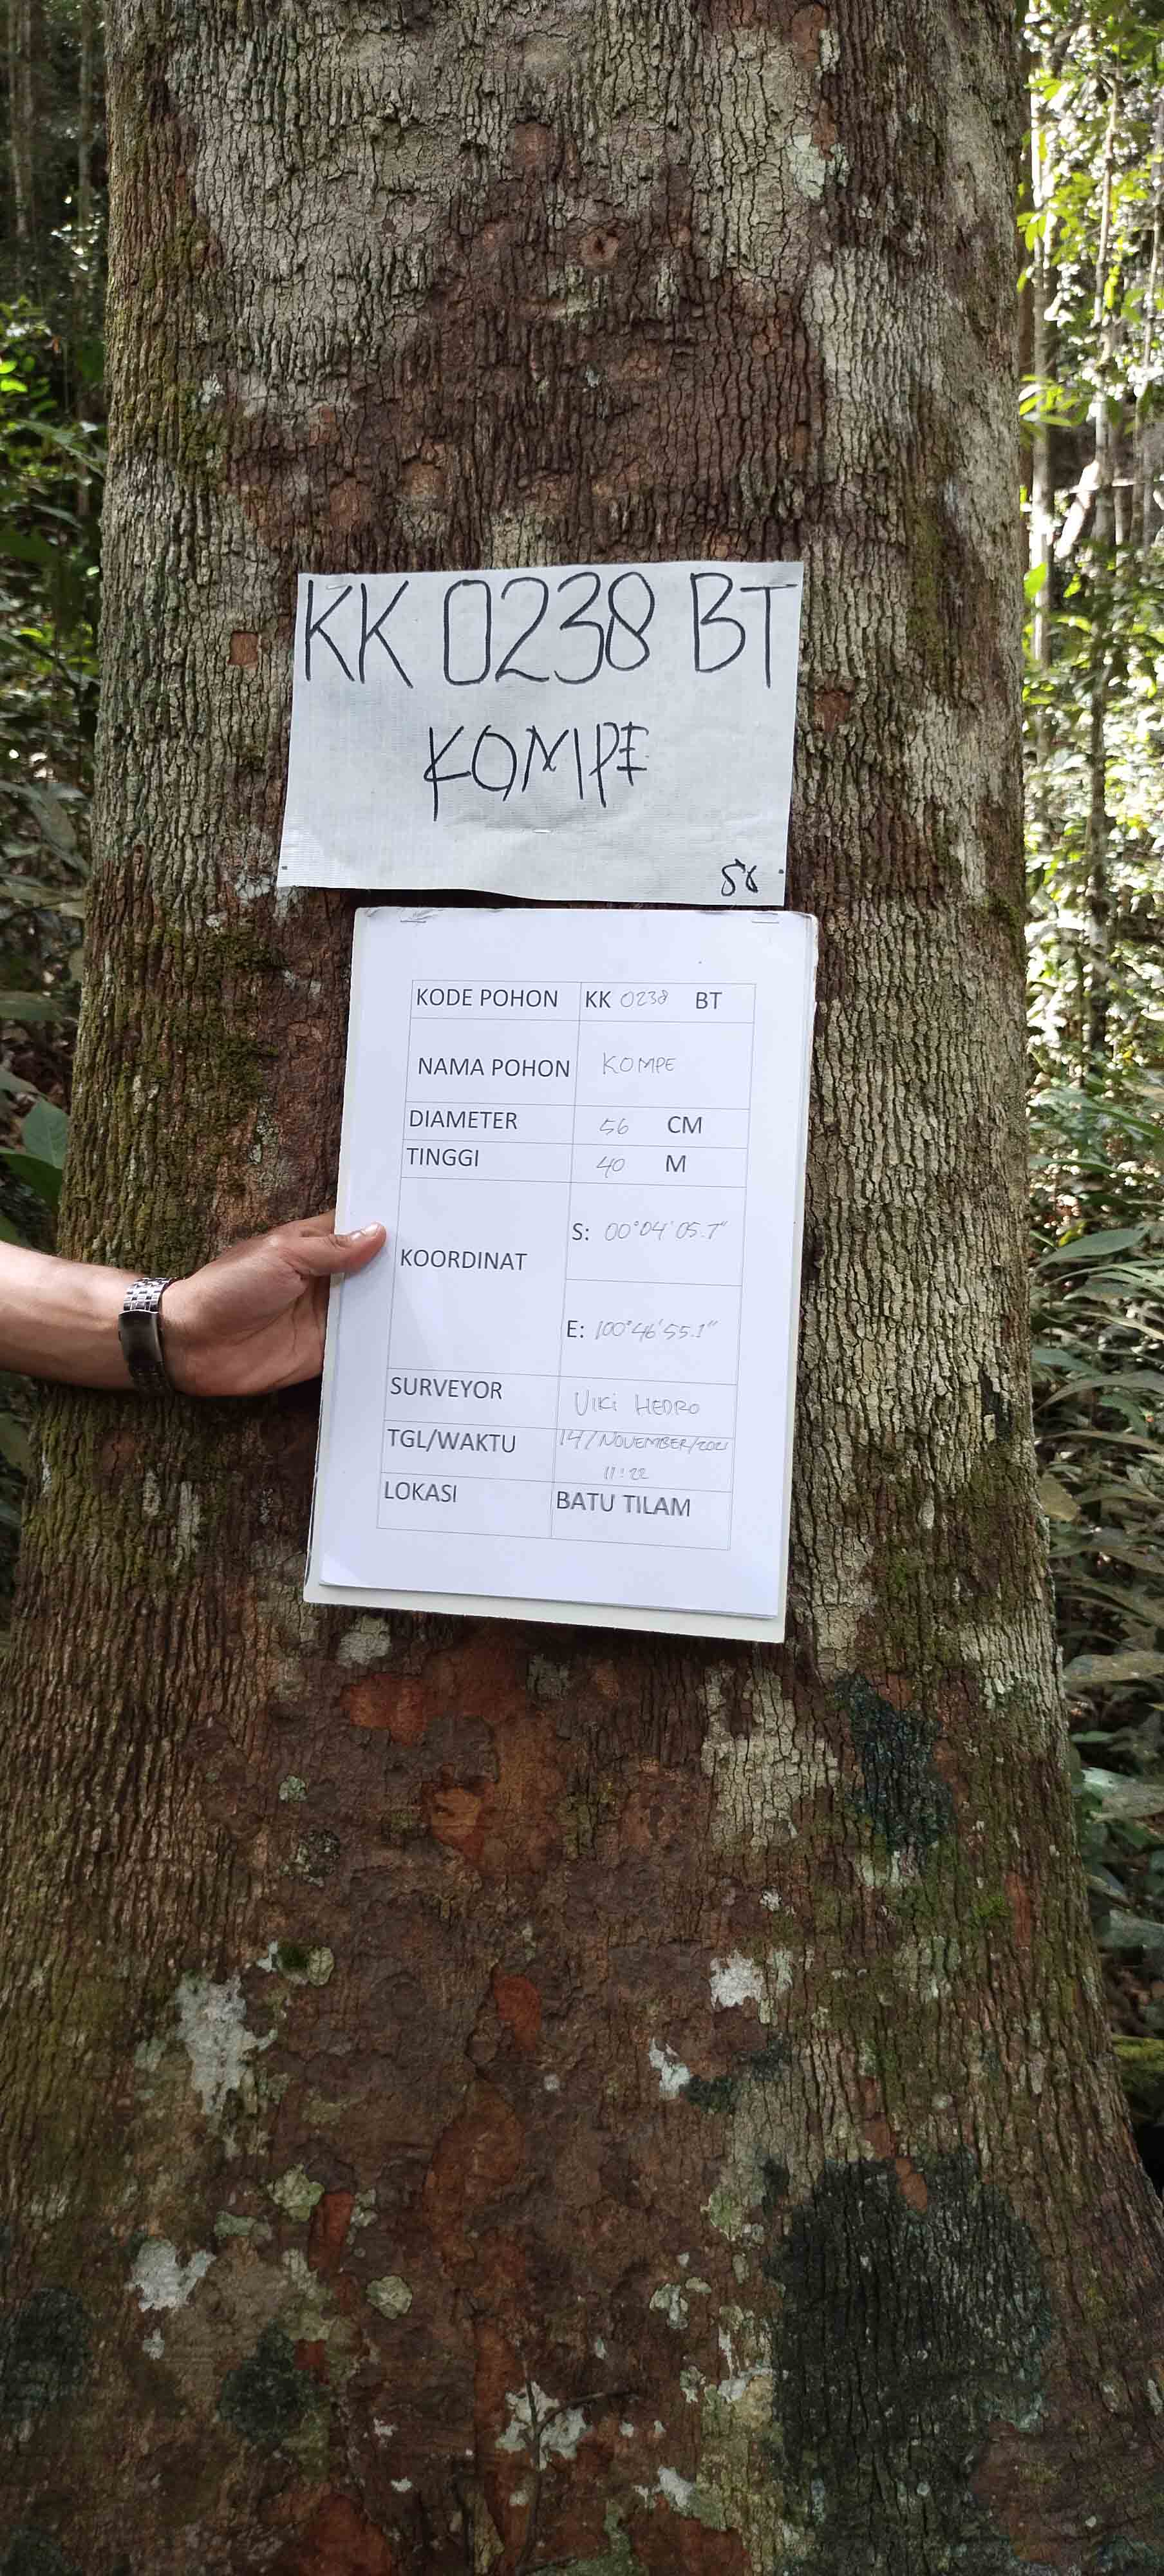 KK 0238 BT
KOMPE
56
KODE POHON KK 0238 BT
NAMA POHON KOMPE
DIAMETER 56 CM
TINGGI 40 M
KOORDINAT
S: 00°04'05.7"
E: 100°46'55.1"
SURVEYOR VIKI HEDRO
TGL/WAKTU 14/NOVEMBER/2021
11:22
LOKASI BATU TILAM